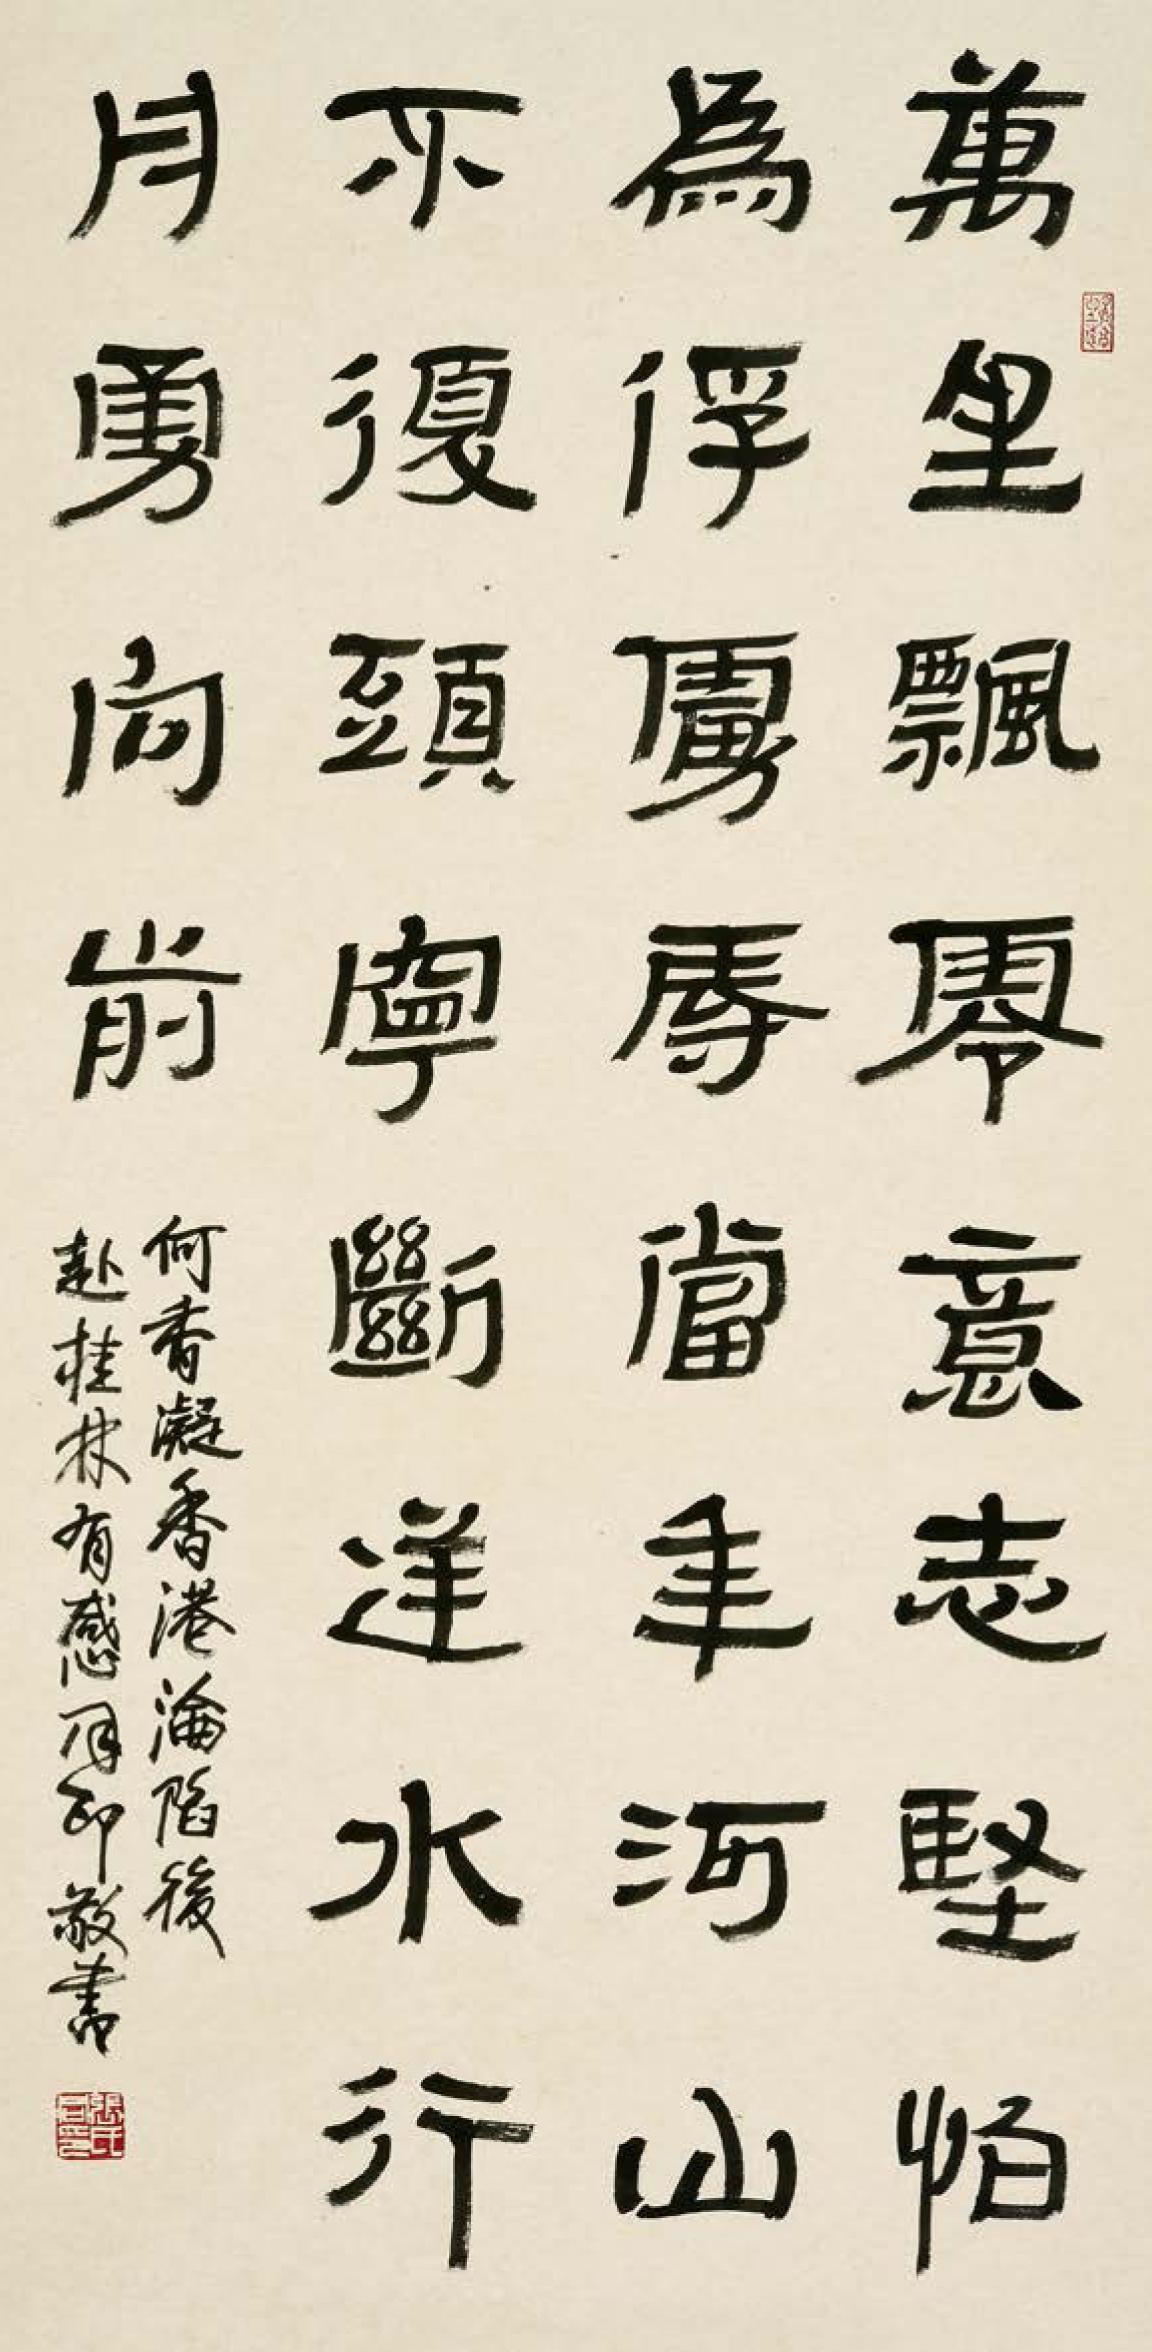 萬里飄零意志堅怕
為俘虜辱當年河山
不復頭寧斷逆水行
舟勇向前
何香凝香港淪陷後
赴桂林有感月印敬書